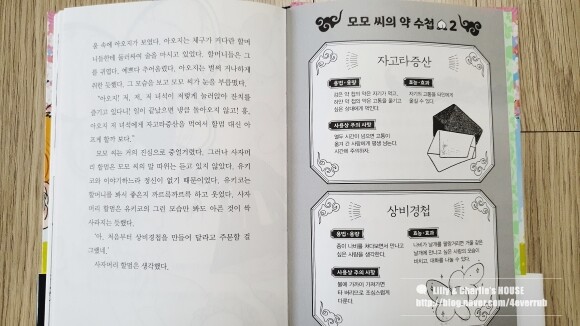 울 속에 아오지가 보였다. 아오지는 체구가 커다란 할머
니들한테 둘러싸여 술을 마시고 있었다. 할머니들은 그
를 귀엽다, 예쁘다 추어올렸다. 아오지는 벌써 거나하게
취한 듯했다. 그 모습을 보고 모모 씨가 눈을 부릅떴다.
"아오지! 저, 저, 저 녀석이 저렇게 늘어앉아 잔치를
즐기고 있다니! 일이 끝났으면 냉큼 돌아오지 않고! 흥,
아오지 저 녀석에게 자고타증산을 먹여서 할멈 대신 아
프게 할까 보다."
모모 씨는 거의 진심으로 중얼거렸다. 그러나 사자머
리 할멈은 모모 씨의 말 따위는 듣고 있지 않았다. 유키
코와 이야기하느라 정신이 없기 때문이었다. 유키코는
할머니를 봐서 좋은지 까르륵까르륵 하고 웃었다. 사자
머리 할멈은 유키코의 그런 모습만 봐도 아픈 것이 싹
사라지는 듯했다.
'아, 처음부터 상비경첩을 만들어 달라고 주문할 걸
그랬네.'
사자머리 할멈은 생각했다.
모모 씨의 약 수첩 2
자고타증산
용법·용량
검은 약 첩의 약은 자기가 먹고,
하얀 약 첩의 약은 고통을 옮기고
싶은 상대에게 먹인다.
효능·효과
자기의 고통을 타인에게
옮길 수 있다.
사용상 주의 사항
열두 시간이 넘으면 고통이
옮겨 간 사람에게 평생 남는다.
시간에 주의하자.
상비경첩
용법·용량
종이 나비를 쳐다보면서 만나고
싶은 사람을 생각한다.
효능·효과
나비가 날개를 팔랑거리면 거울 같은
날개에 만나고 싶은 사람의 모습이
비치고, 대화를 나눌 수 있다.
사용상 주의 사항
불에 가까이 가져가면
타 버리므로 조심스럽게
다룬다.
Lilly & Charlie's HOUSE
http://blog.naver.com/4everrub